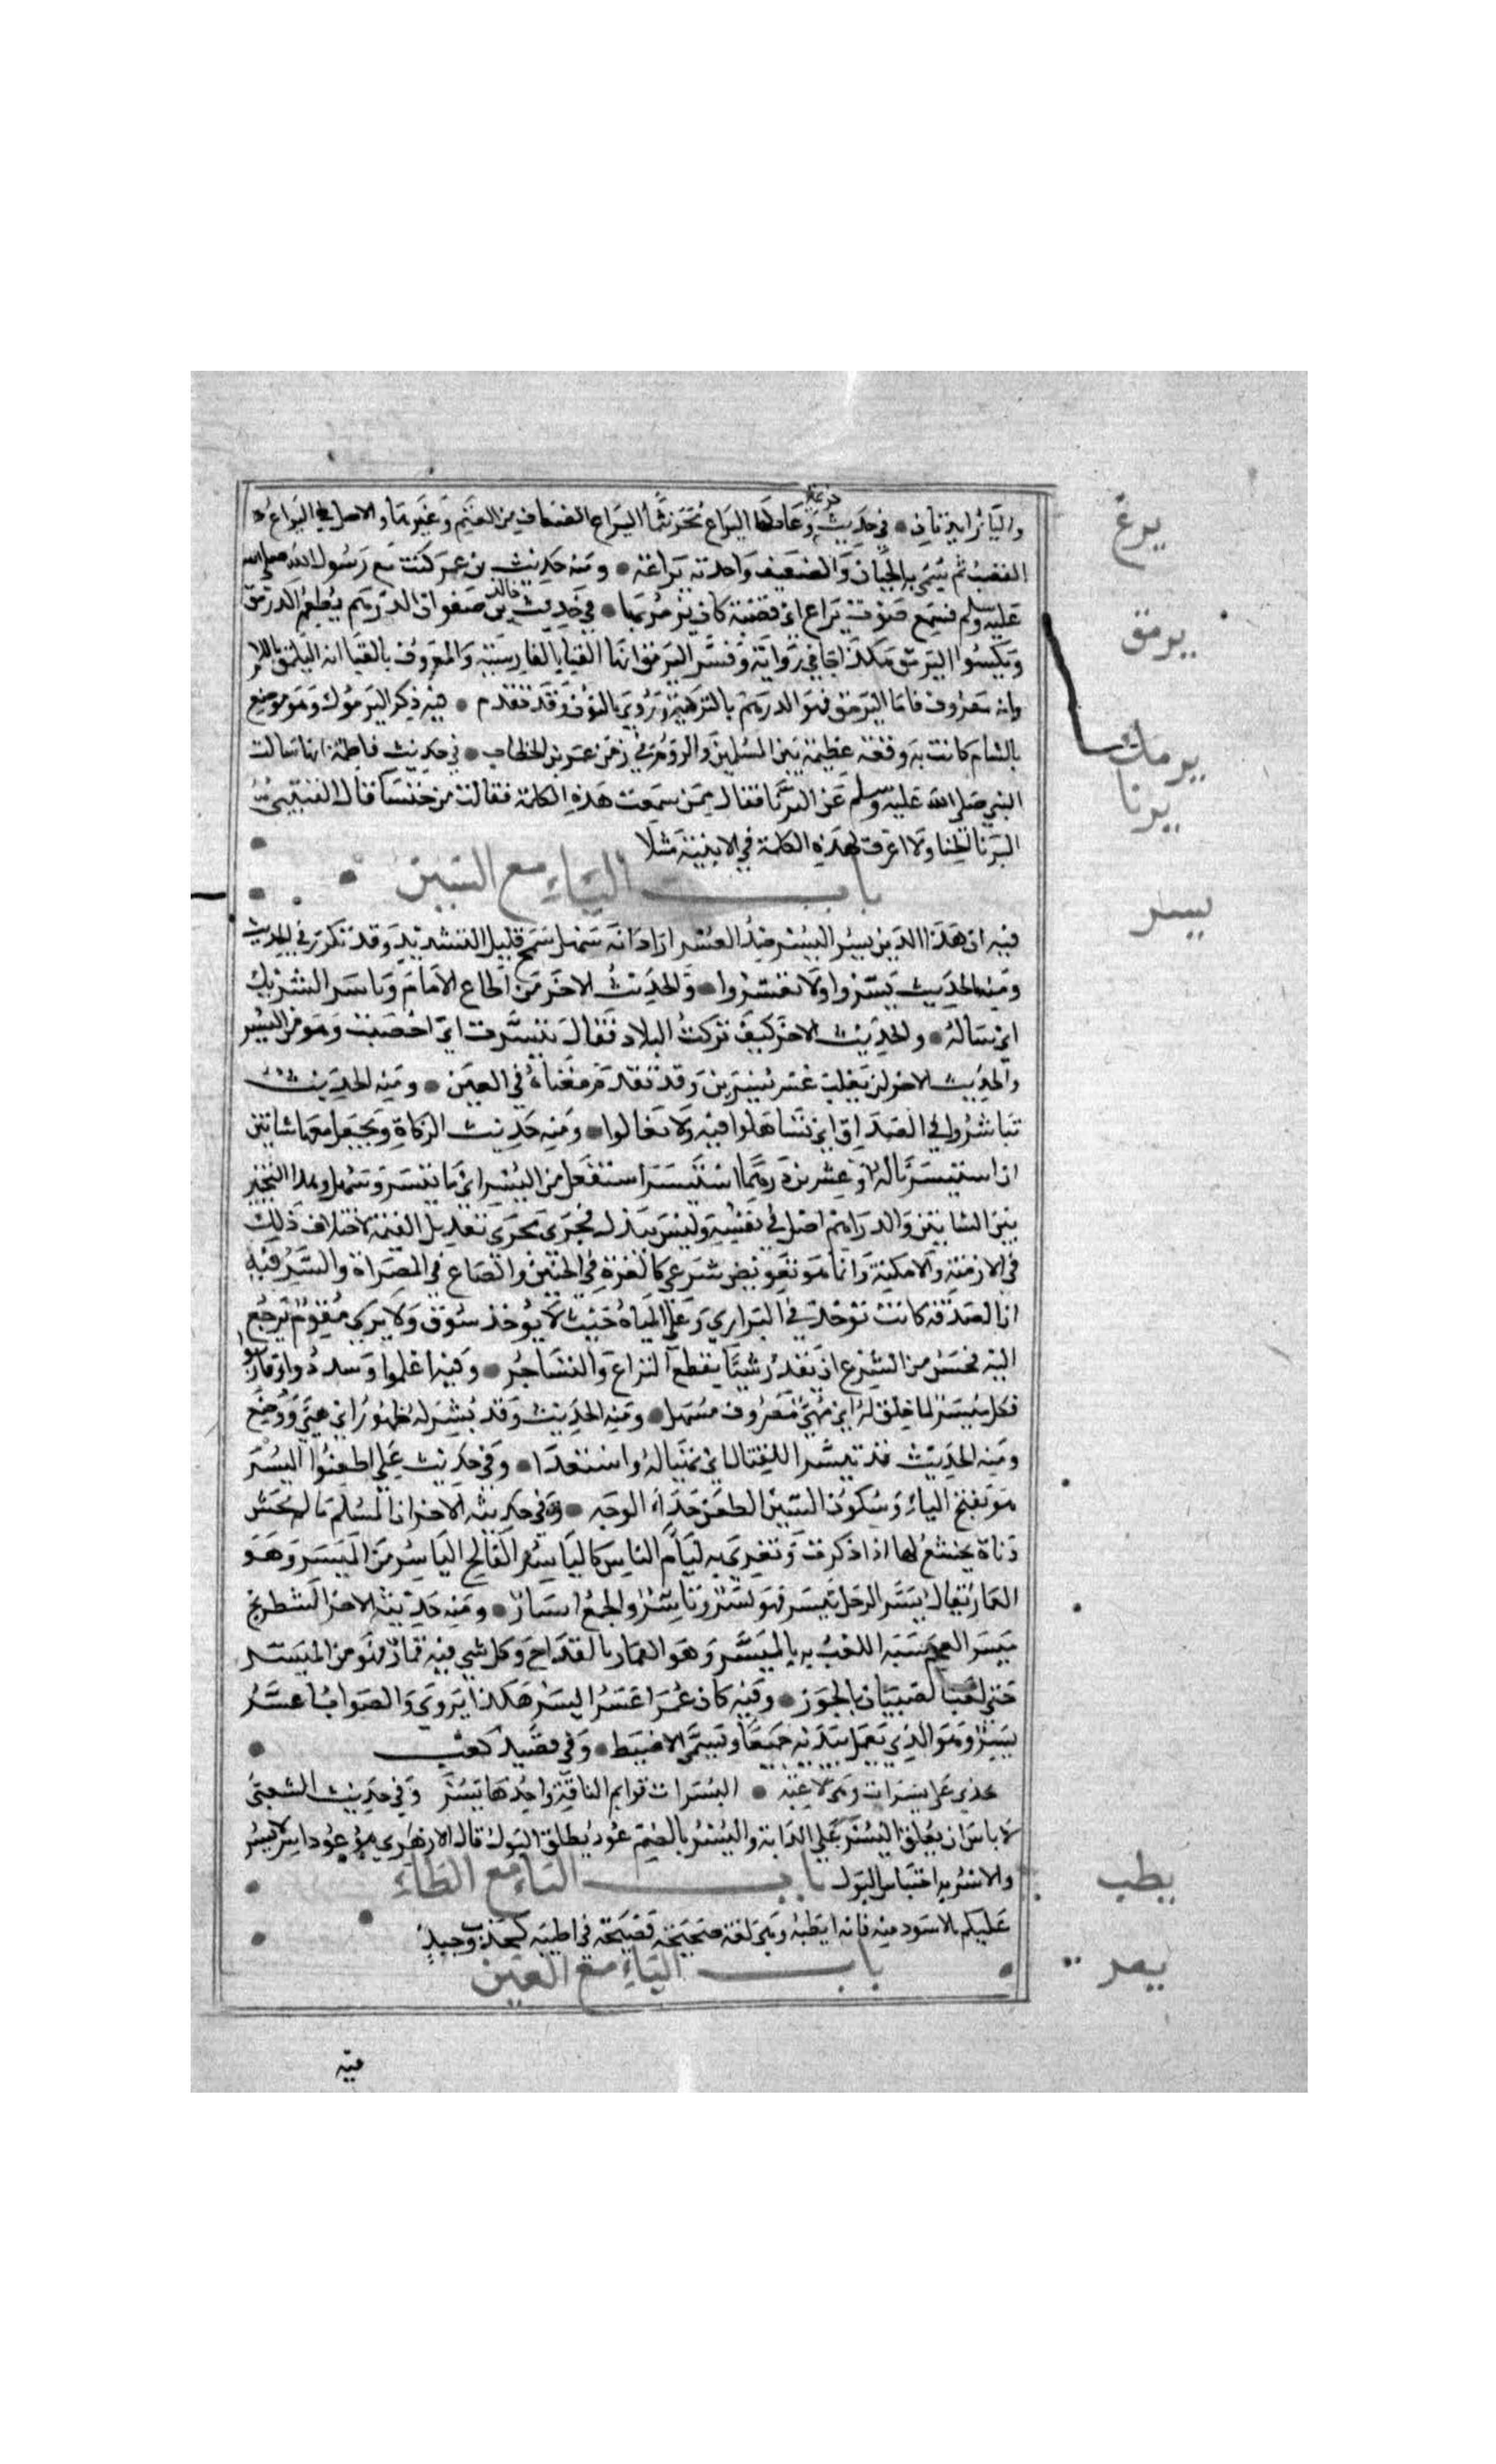 والياء زايدتان في حديث خزيمة وعاد لها اليراع مجرنثما اليراع الضعاف من الغنم وغيرها والاصل في اليراع
القصب ثم سمي به الجبان والضعيف واحدته يراعة ومنه حديث بن عمر كنت مع رسول الله صلى الله
عليه وسلم فسمع صوت يراع اي قصبة كان يزمر بها في حديث خالد بن صفوان الدرهم يطعم الدرمق
ويكسوا اليرمق هكذا جا في رواية وفسر اليرمق انها القبا بالفارسية والمعروف بالقبا انه اليلمق باللام
وانه معروف فاما اليرمق فهو الدرهم بالتركية ويروى بالنون وقد تقدم فيه ذكر اليرموك وهو موضع
بالشام كانت به وقعة عظيمة بين المسلمين والروم في زمن عمر بن الخطاب في حديث فاطمة انها سالت
النبي صلى الله عليه وسلم عن اليرنا فقال ممن سمعت هذه الكلمة فقالت من خنسا قال القتيبي
اليرنا الحنا ولا اعرف لهذه الكلمة في الابنية مثلا
باب الياء مع السين
فيه ان هذا الدين يسر اليسر ضد العسر اراد انه سهل سمح قليل التشديد وقد تكرر في الحديث
ومنه الحديث يسروا ولا تعسروا والحديث الاخر من اطاع الامام وياسر الشريك
اي ساله والحديث الاخر كيف تركت البلاد فقال تيسرت اي اخصبت وهو من اليسر
والحديث الاخر لن يغلب عسر يسرين وقد تقدم معناه في العين ومنه الحديث
تياسروا في الصداق اي تساهلوا فيه ولا تغالوا ومنه حديث الزكاة ويجعل معها شاتين
ان استيسرتا له او عشرين درهما استيسر استفعل من اليسر اي ما تيسر وسهل وهذا التخيير
بين الشاتين والدراهم اصل في نفسه وليس ببدل فجرى مجرى تعديل القيمة لاختلاف ذلك
في الازمنة والامكنة وانما هو تعويض شرعي كالغرة في الجنين والصاع في المصراة والسر فيه
ان الصدقة كانت توخذ في البراري وعلى المياه حيث لا يوخذ سوق ولا يرى مقوم يرجع
اليه فحسن من الشرع ان يقدر شيئا يقطع النزاع والتشاجر وفيه اعملوا وسددوا وقاربوا
فكل ميسر لما خلق له اي مهيئ معروف مسهل ومنه الحديث وقد يسر له طهور اي هيئ ووضع
ومنه الحديث قد تيسرا للقتال اي تهيا له واستعدا وفي حديث علي اطعنوا اليسر
هو بفتح الياء وسكون السين الطعن حذاء الوجه وفي حديثه الاخر ان المسلم ما لم يغش
دناة يخشع لها اذا ذكرت وتغرى به ليام الناس كالياسر الفالج الياسر من الميسر وهو
القمار يقال يسر الرجل ييسر فهو يسر وياسر والجمع ايسار ومنه حديثه الاخر الشطرنج
ميسر العجم شبه اللعب به بالميسر وهو القمار بالقداح وكل شي فيه قمار فهو من الميسر
حتى لعب الصبيان بالجوز وفيه كان عمر اعسر ايسر هكذا يروى والصواب اعسر
يسر وهو الذي يعمل بيديه جميعا ويسمى الاضبط وفي قصيد كعب
تخدي على يسرات وهي لاهية اليسرات قوايم الناقة واحدها يسر وفي حديث الشعبي
لا باس ان يعلق اليسر على الدابة واليسر بالضم عود يطلق البول قال الازهري هو عود اسر لا يسر
والاسر به احتباس البول باب الياء مع الطاء
عليكم بالاسود منه فانه ايطبه وهي لغة صحيحة فصيحة في اطيبه كجذب وجبذ
باب الياء مع العين
فيه
يرع
يرمق
يرمك
يرنا
يسر
يطب
يعر